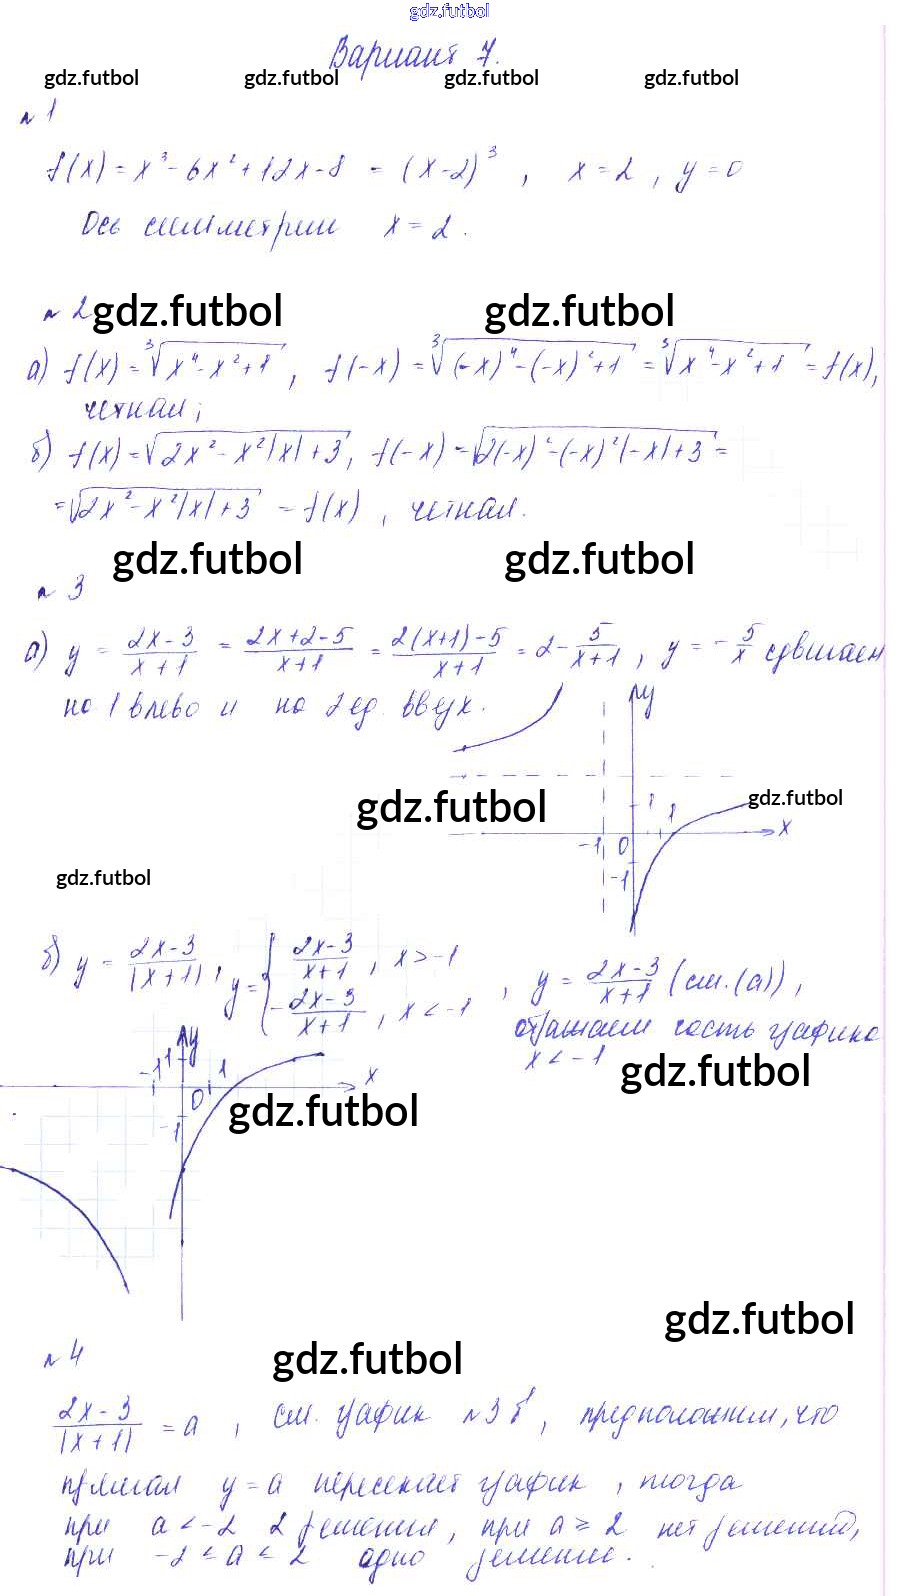 gdz.futbol
Вариант 7.
gdz.futbol gdz.futbol gdz.futbol gdz.futbol
№ 1
f(x) = x³ - 6x² + 12x - 8 = (x-2)³ , x = 2 , y = 0
Ось симметрии x = 2 .
№ 2 gdz.futbol gdz.futbol
а) f(x) = ∛(x⁴ - x² + 1) , f(-x) = ∛((-x)⁴ - (-x)² + 1) = ∛(x⁴ - x² + 1) = f(x),
четная ;
б) f(x) = √(2x² - x²|x| + 3), f(-x) = √(2(-x)² - (-x)²|-x| + 3) =
= √(2x² - x²|x| + 3) = f(x) , четная.
gdz.futbol gdz.futbol
№ 3
а) y = (2x-3)/(x+1) = (2x+2-5)/(x+1) = (2(x+1)-5)/(x+1) = 2 - 5/(x+1) , y = -5/x сдвигаем
на 1 влево и на 2 ед. вверх.
y
gdz.futbol gdz.futbol
1 1 x
-1 0
-1
gdz.futbol
б) y = (2x-3)/|x+1| , y = { (2x-3)/(x+1) , x > -1
-(2x-3)/(x+1) , x < -1 , y = (2x-3)/(x+1) (см. (а)) ,
отражаем часть графика
x < -1
y
-1 1 1 x
gdz.futbol
0 gdz.futbol
-1
gdz.futbol
№ 4 gdz.futbol
(2x-3)/|x+1| = a , см. график №3 б , предположим, что
прямая y = a пересекает график , тогда
при a < -2 2 решения , при a ⩾ 2 нет решений,
при -2 ≤ a < 2 одно решение .